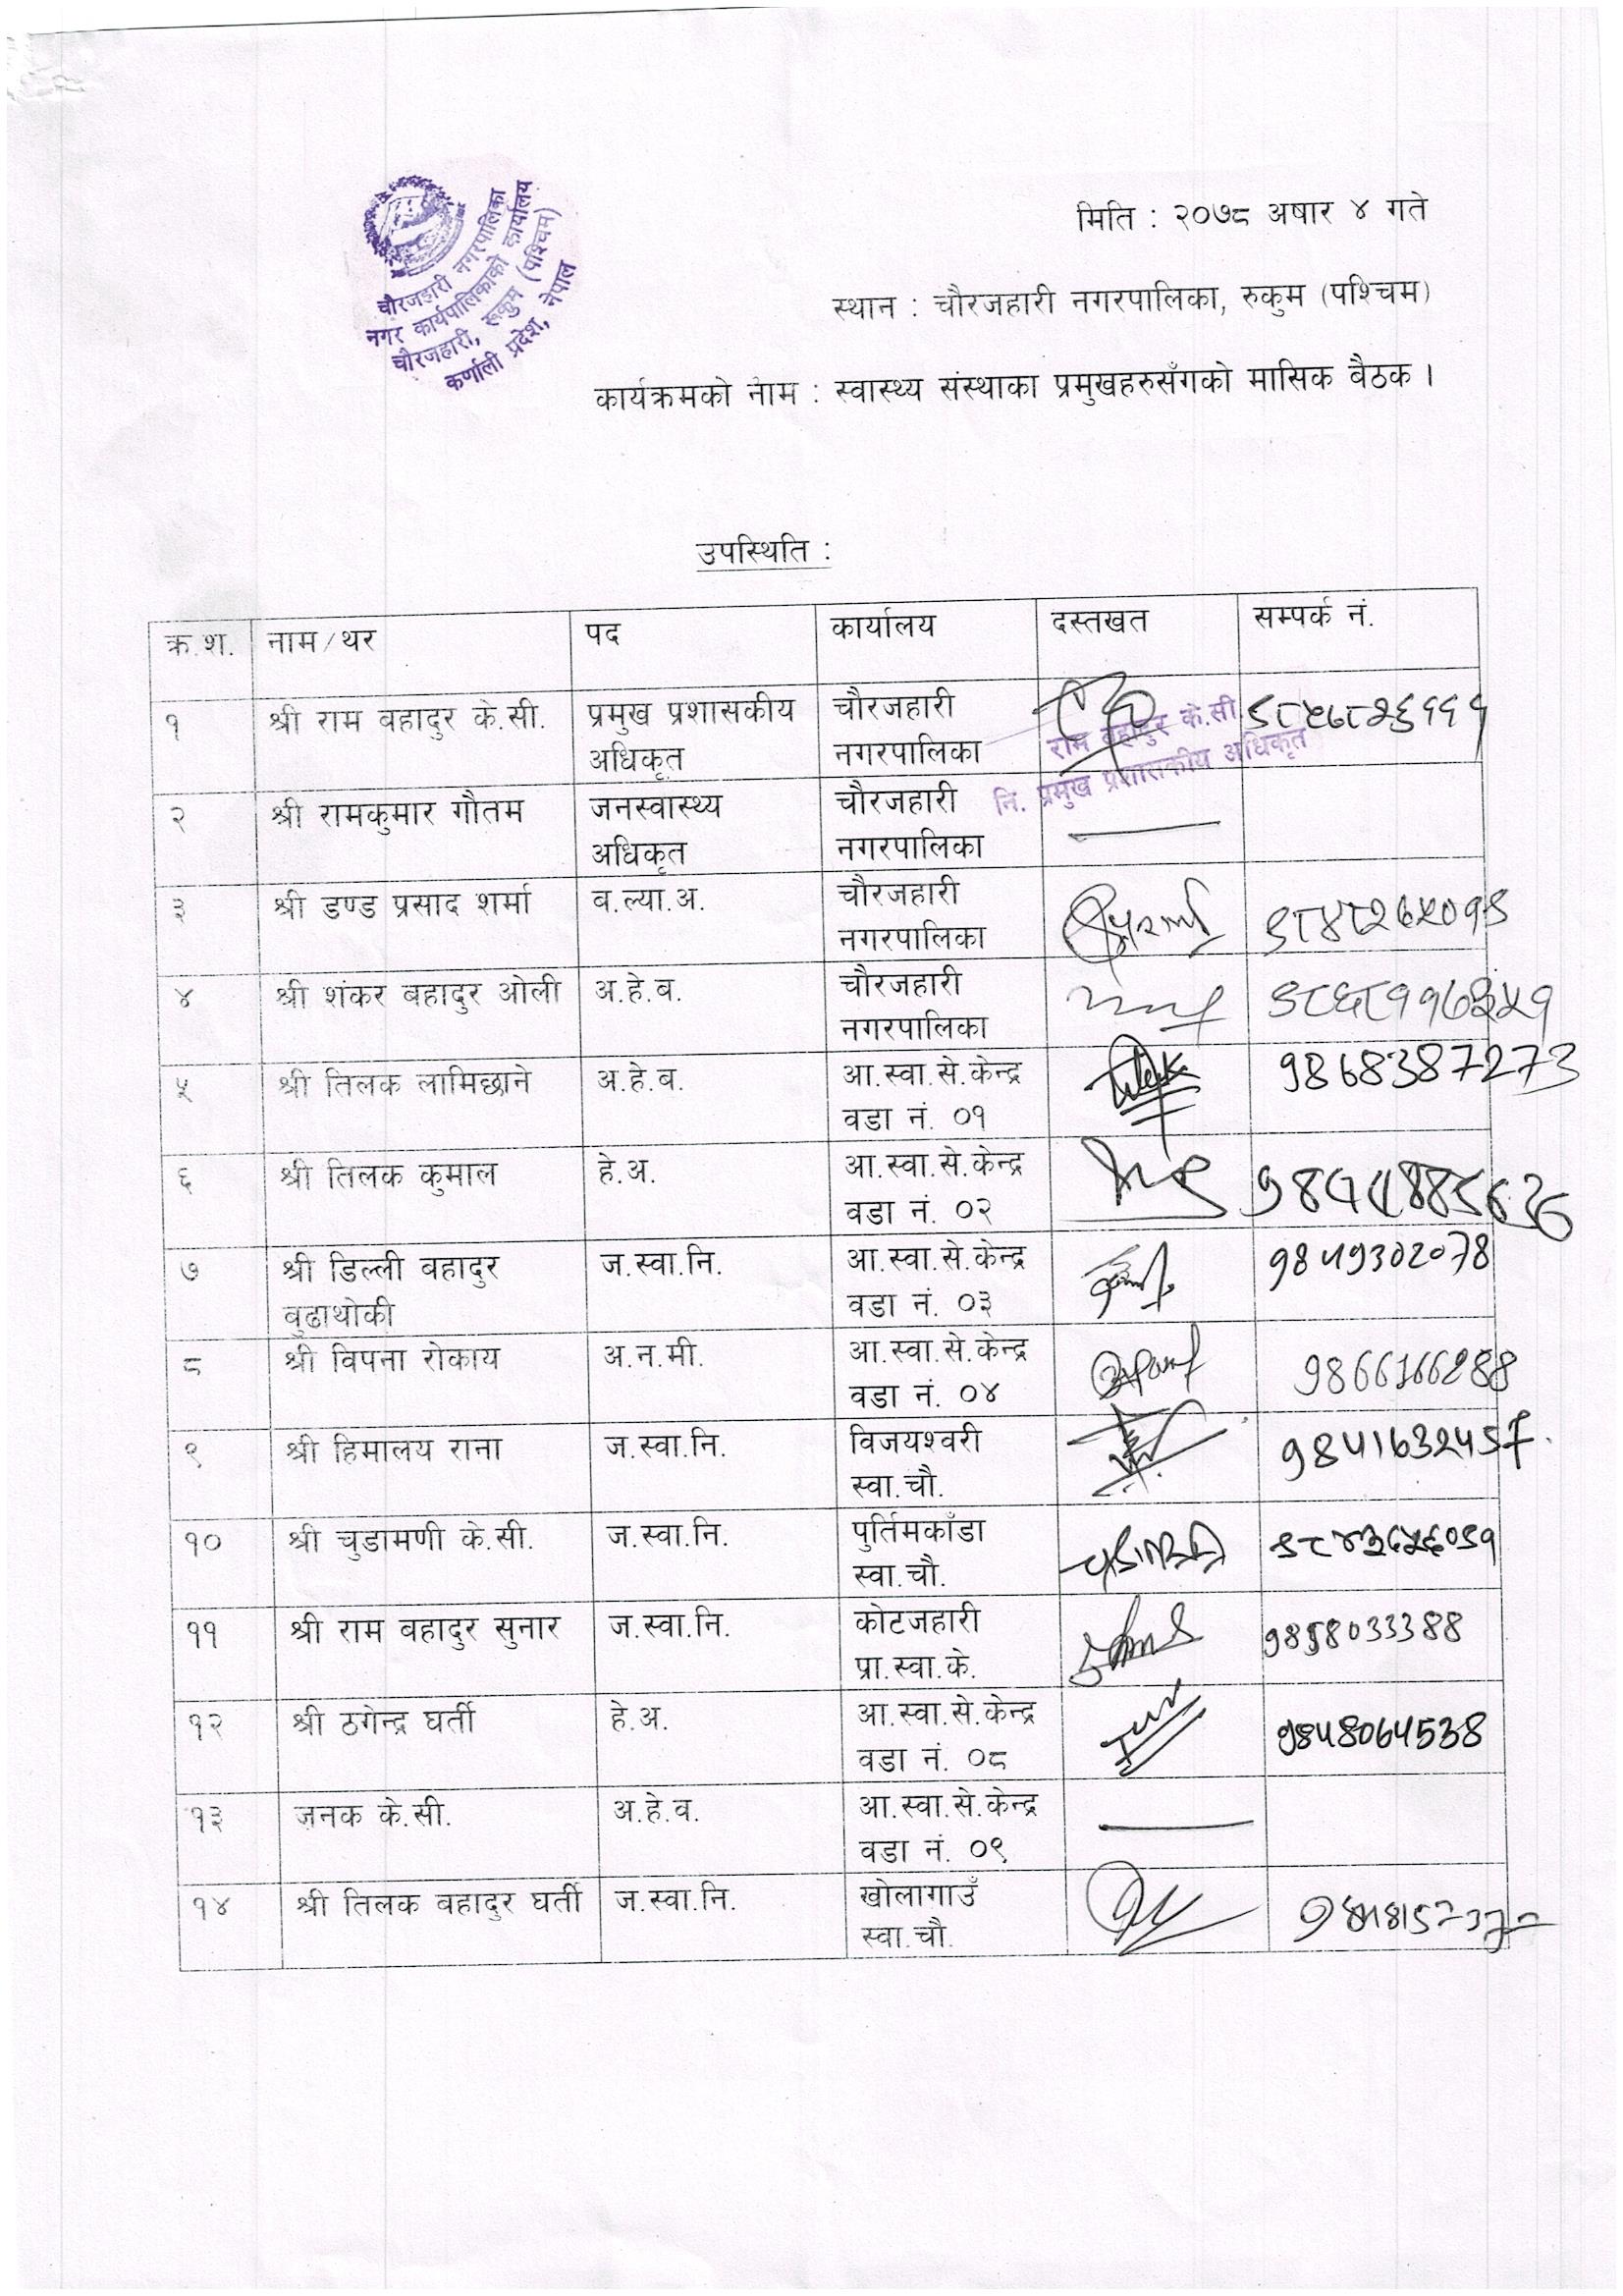 चौरजहारी नगरपालिका
नगर कार्यपालिकाको कार्यालय
चौरजहारी, रूकुम (पश्चिम)
कर्णाली प्रदेश, नेपाल
मिति : २०७८ अषार ४ गते
स्थान : चौरजहारी नगरपालिका, रुकुम (पश्चिम)
कार्यक्रमको नाम : स्वास्थ्य संस्थाका प्रमुखहरुसँगको मासिक बैठक ।
उपस्थिति :
क्र.श. नाम/थर पद कार्यालय दस्तखत सम्पर्क नं.
१ श्री राम बहादुर के.सी. प्रमुख प्रशासकीय चौरजहारी ९८५८८२६१११
अधिकृत नगरपालिका
राम बहादुर के.सी
नि. प्रमुख प्रशासकीय अधिकृत
२ श्री रामकुमार गौतम जनस्वास्थ्य चौरजहारी
अधिकृत नगरपालिका
३ श्री डण्ड प्रसाद शर्मा ब.ल्या.अ. चौरजहारी ९८४८२७५०१९
नगरपालिका
४ श्री शंकर बहादुर ओली अ.हे.ब. चौरजहारी
नगरपालिका
५ श्री तिलक लामिछाने अ.हे.ब. आ.स्वा.से.केन्द्र 9868387273
वडा नं. ०१
६ श्री तिलक कुमाल हे.अ. आ.स्वा.से.केन्द्र
वडा नं. ०२
७ श्री डिल्ली बहादुर ज.स्वा.नि. आ.स्वा.से.केन्द्र 9849302078
बुढाथोकी वडा नं. ०३
८ श्री विपना रोकाय अ.न.मी. आ.स्वा.से.केन्द्र 9866166288
वडा नं. ०४
९ श्री हिमालय राना ज.स्वा.नि. विजयश्वरी
स्वा.चौ.
१० श्री चुडामणी के.सी. ज.स्वा.नि. पुर्तिमकाँडा
स्वा.चौ.
११ श्री राम बहादुर सुनार ज.स्वा.नि. कोटजहारी 9858033388
प्रा.स्वा.के.
१२ श्री ठगेन्द्र घर्ती हे.अ. आ.स्वा.से.केन्द्र 9848064538
वडा नं. ०८
१३ जनक के.सी. अ.हे.व. आ.स्वा.से.केन्द्र
वडा नं. ०९
१४ श्री तिलक बहादुर घर्ती ज.स्वा.नि. खोलागाउँ
स्वा.चौ.